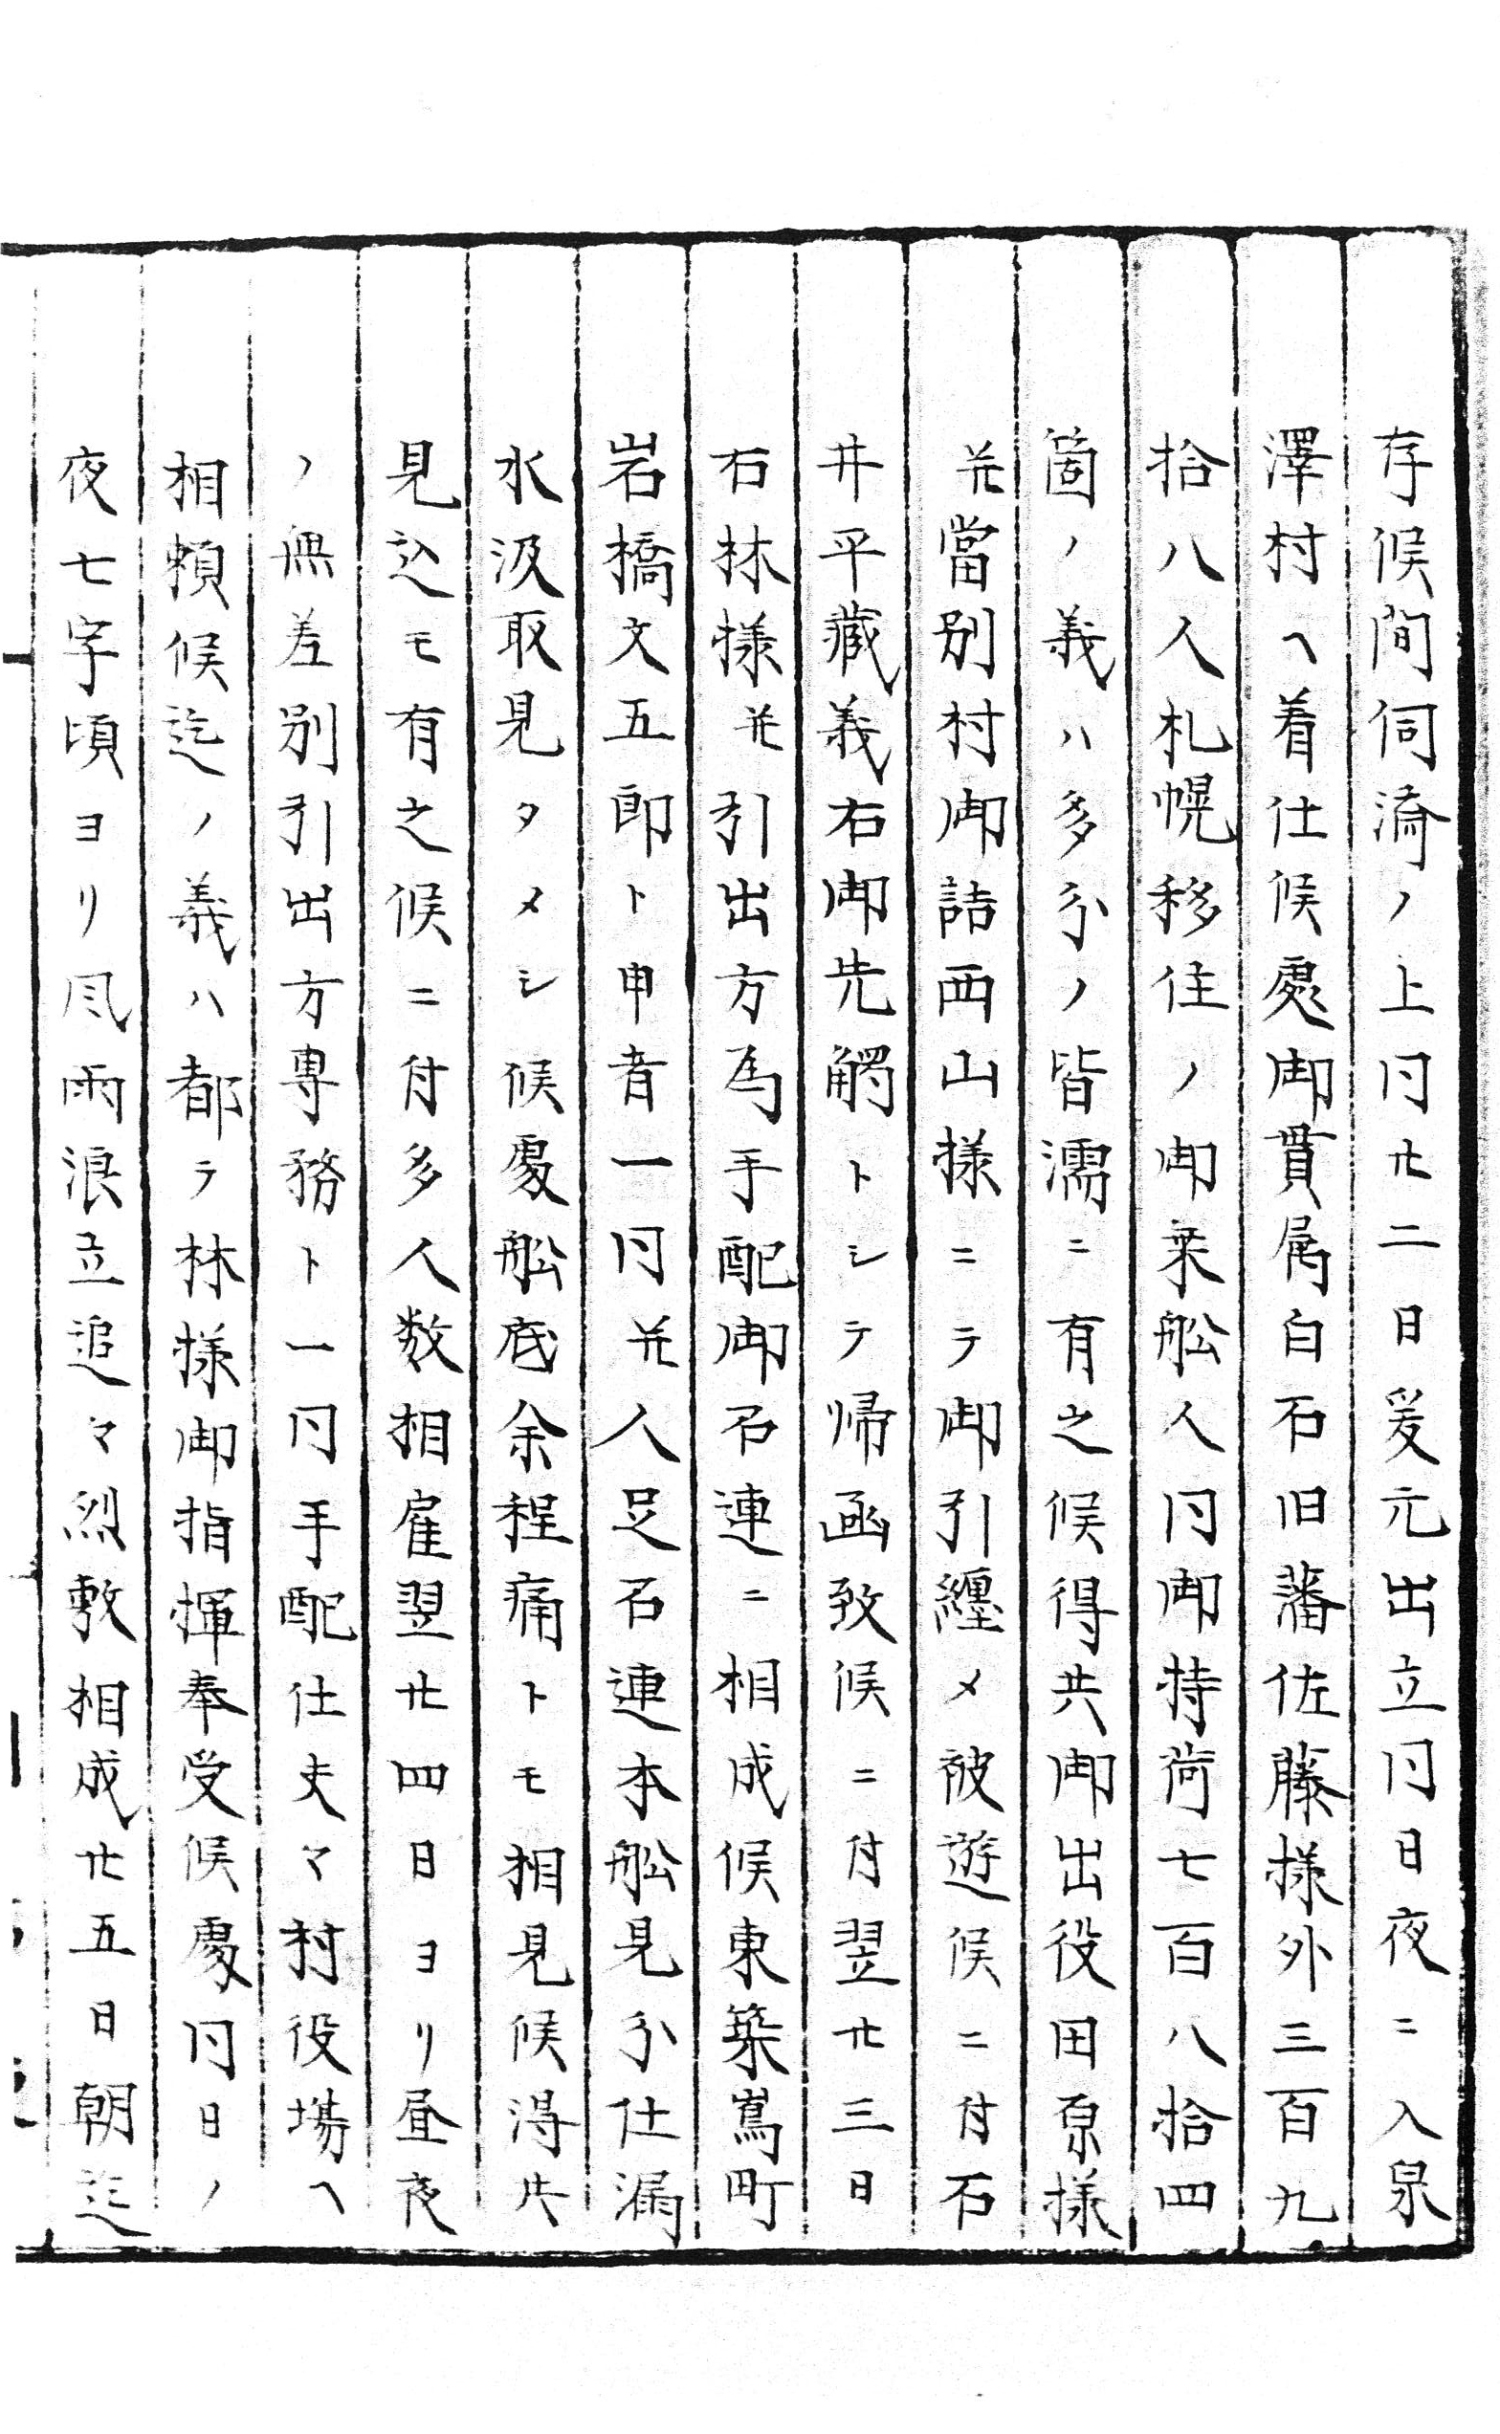 存候間伺濟ノ上同廿二日爰元出立同日夜ニ入泉
澤村ヘ着仕候處御貫属白石旧藩佐藤様外三百九
拾八人札幌移住ノ御乗舩人同御持荷七百八拾四
箇ノ義ハ多分ノ皆濡ニ有之候得共御出役田原様
并當別村御詰西山様ニテ御引纏メ被遊候ニ付石
井平藏義右御先觸トシテ帰函致候ニ付翌廿三日
右林様并引出方為手配御召連ニ相成候東築嶌町
岩橋文五郎ト申者一同并人足召連本舩見分仕漏
水汲取見タメシ候處舩底余程痛トモ相見候得共
見込モ有之候ニ付多人数相雇翌廿四日ヨリ昼夜
ノ無差別引出方専務ト一同手配仕夫々村役場ヘ
相頼候迄ノ義ハ都テ林様御指揮奉受候處同日ノ
夜七字頃ヨリ風雨浪立追々烈敷相成廿五日朝迄